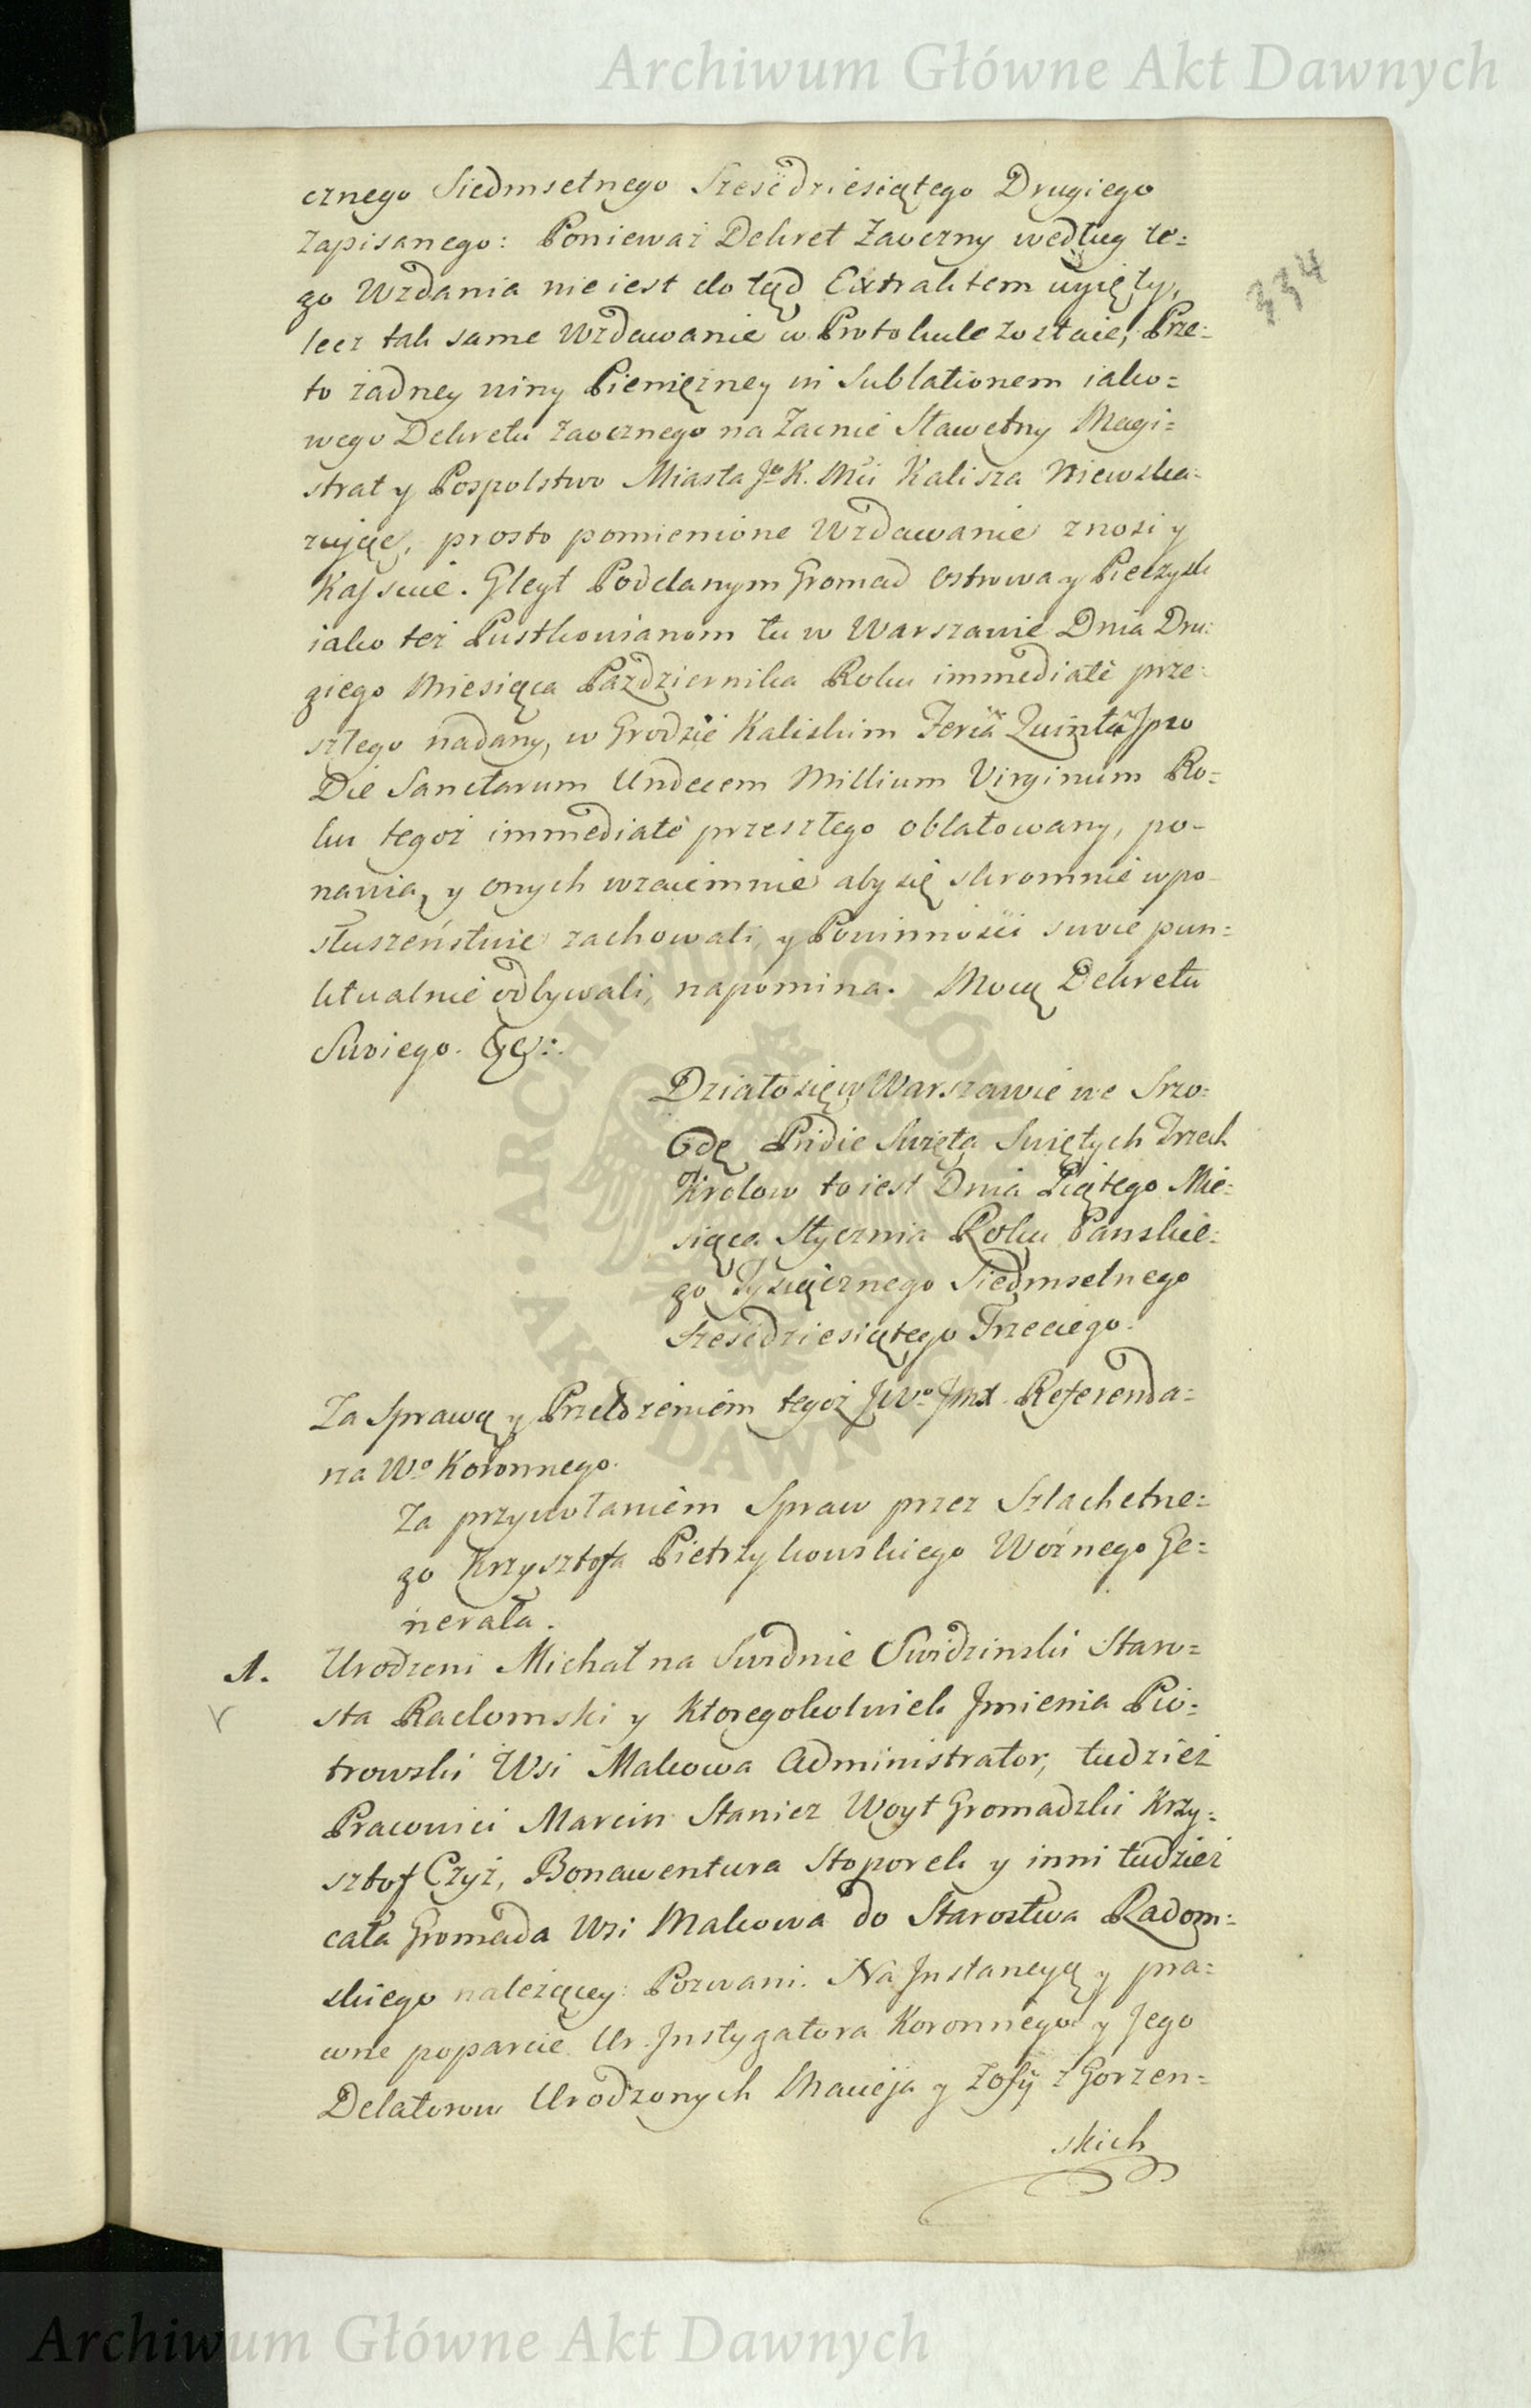 Archiwum Główne Akt Dawnych
cznego Siedmsetnego Sześćdziesiątego Drugiego
zapisanego: Ponieważ Dekret Zaoczny według te=
go Wzdania nie iest do tąd Extraktem uyięty,
lecz tak same Wzdawanie w Protokule zostaie, Prze=
to żadney winy Pieniężney in Sublationem iako=
wego Dekretu Zaocznego na Zacnie Sławetny Magi=
strat y Pospolstwo Miasta Jo K. Mci Kalisza niewska=
zuiąc, prosto pomienione Wzdawanie znosi y
Kassuie. Gleyt Poddanym Gromad Ostrowa y Pieczysk
iako też Pustkowianom tu w Warszawie Dnia Dru=
giego Miesiąca Października Roku immediate prze=
szłego nadany, w Grodzie Kaliskim Feria Quinta Ipso
Die Sanctarum Undecem Millium Virginum Ro=
ku tegoż immediate przeszłego oblatowany, po=
nawia, y onych wzaiemnie aby się skromnie w po=
słuszeństwie zachowali, y Powinności swoie pun=
ktualnie odbywali, napomina. Mocą Dekretu
Swoiego. &c:.
Działo się w Warszawie we Srzo=
dę Pridie Swięta Swiętych Trzech
Krolow to iest Dnia Piątego Mie=
siąca Stycznia Roku Panskie=
go Tysiącznego Siedmsetnego
Sześćdziesiątego Trzeciego.
Za Sprawą y Przełożeniem tegoż JWo Jmx. Referenda=
rza Wo Koronnego.
Za przywołaniem Spraw przez Szlachetne=
go Krzysztofa Pietrzykowskiego Woźnego Ge=
nerała.
1. Urodzeni Michał na Swidnie Swidzinski Staro=
sta Radomski y Ktoregokolwiek Jmienia Pio=
trowski Wsi Makowa Administrator, tudzież
Pracowici Marcin Stanicz Woyt Gromadzki Krzy=
sztof Czyż, Bonawentura Stoporek y inni tudzież
cała Gromada Wsi Makowa do Starostwa Radom=
skiego należącey: Pozwani. Na Jnstancyą y pra=
wne poparcie Ur. Jnstygatora Koronnego y Jego
Delatorow Urodzonych Macieja y Zofij z Gorzen=
skich
334
Archiwum Główne Akt Dawnych